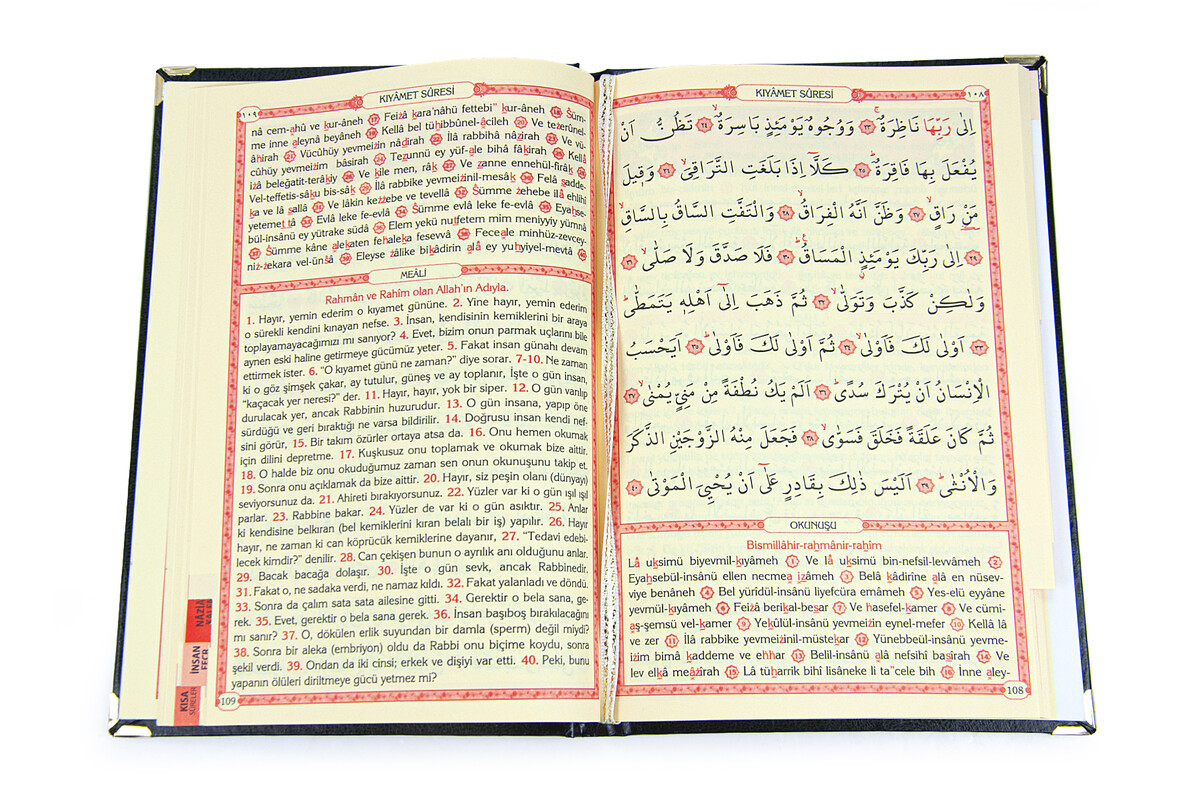 KIYÂMET SÛRESİ
١٠٨
اِلٰى رَبِّهَا نَاظِرَةٌۚ ﴿٢٣﴾ وَوُجُوهٌ يَوْمَئِذٍ بَاسِرَةٌۙ ﴿٢٤﴾ تَظُنُّ اَنْ
يُفْعَلَ بِهَا فَاقِرَةٌۜ ﴿٢٥﴾ كَلَّٓا اِذَا بَلَغَتِ التَّرَاقِيَۙ ﴿٢٦﴾ وَق۪يلَ
مَنْ رَاقٍۙ ﴿٢٧﴾ وَظَنَّ اَنَّهُ الْفِرَاقُۙ ﴿٢٨﴾ وَالْتَفَّتِ السَّاقُ بِالسَّاقِۙ
﴿٢٩﴾ اِلٰى رَبِّكَ يَوْمَئِذٍ الْمَسَاقُۜ ﴿٣٠﴾ فَلَا صَدَّقَ وَلَا صَلّٰىۙ ﴿٣١﴾
وَلٰكِنْ كَذَّبَ وَتَوَلّٰىۙ ﴿٣٢﴾ ثُمَّ ذَهَبَ اِلٰٓى اَهْلِه۪ يَتَمَطّٰىۜ
﴿٣٣﴾ اَوْلٰى لَكَ فَاَوْلٰىۙ ﴿٣٤﴾ ثُمَّ اَوْلٰى لَكَ فَاَوْلٰىۜ ﴿٣٥﴾ اَيَحْسَبُ
الْاِنْسَانُ اَنْ يُتْرَكَ سُدًىۜ ﴿٣٦﴾ اَلَمْ يَكُ نُطْفَةً مِنْ مَنِيٍّ يُمْنٰىۙ ﴿٣٧﴾
ثُمَّ كَانَ عَلَقَةً فَخَلَقَ فَسَوّٰىۙ ﴿٣٨﴾ فَجَعَلَ مِنْهُ الزَّوْجَيْنِ الذَّكَرَ
وَالْاُنْثٰىۜ ﴿٣٩﴾ اَلَيْسَ ذٰلِكَ بِقَادِرٍ عَلٰٓى اَنْ يُحْيِيَ الْمَوْتٰى ﴿٤٠﴾
OKUNUŞU
Bismillâhir-rahmânir-rahîm
Lâ uksimü biyevmil-kıyâmeh (1) Ve lâ uksimü bin-nefsil-levvâmeh (2)
Eyahsebül-insânü ellen necmea izâmeh (3) Belâ kâdirîne alâ en nüsev-
viye benâneh (4) Bel yürîdül-insânü liyefcüra emâmeh (5) Yes-elü eyyâne
yevmül-kıyâmeh (6) Feizâ berikal-besar (7) Ve hasefel-kamer (8) Ve cümi-
aş-şemsü vel-kamer (9) Yekûlül-insânü yevmeizin eynel-mefer (10) Kellâ lâ
ve zer (11) İlâ rabbike yevmeizinil-müstekar (12) Yünebbeül-insânü yevme-
izim bimâ kaddeme ve ehhar (13) Belil-insânü alâ nefsihî basîrah (14) Ve
lev elkâ meâzîrah (15) Lâ tüharrik bihî lisâneke li ta"cele bih (16) İnne aley-
108
KIYÂMET SÛRESİ
١٠٩
nâ cem-ahû ve kur-âneh (17) Feizâ kara'nâhü fettebi" kur-âneh (18) Süm-
me inne aleynâ beyâneh (19) Kellâ bel tühibbûnel-âcileh (20) Ve tezerûnel-
âhirah (21) Vücûhüy yevmeizin nâdirah (22) İlâ rabbihâ nâzirah (23) Ve vü-
cûhüy yevmeizim bâsirah (24) Tezunnü ey yüf-ale bihâ fâkirah (25) Kellâ
izâ beleğatit-terâkiy (26) Ve kîle men, râk (27) Ve zanne ennehül-firâk (28)
Vel-teffetis-sâku bis-sâk (29) İlâ rabbike yevmeizinil-mesâk (30) Felâ sadde-
ka ve lâ sallâ (31) Ve lâkin kezzebe ve tevellâ (32) Sümme zehebe ilâ ehlihî
yetemettâ (33) Evlâ leke fe-evlâ (34) Sümme evlâ leke fe-evlâ (35) Eyahse-
bül-insânü ey yütrake südâ (36) Elem yekü nutfetem mim meniyyiy yümnâ
(37) Sümme kâne alekaten fehaleka fesevvâ (38) Feceale minhüz-zevcey-
niz-zekara vel-ünsâ (39) Eleyse zâlike bikâdirin alâ ey yuhyiyel-mevtâ (40)
MEÂLİ
Rahmân ve Rahîm olan Allah'ın Adıyla.
1. Hayır, yemin ederim o kıyamet gününe. 2. Yine hayır, yemin ederim
o sürekli kendini kınayan nefse. 3. İnsan, kendisinin kemiklerini bir araya
toplayamayacağımızı mı sanıyor? 4. Evet, bizim onun parmak uçlarını bile
aynen eski haline getirmeye gücümüz yeter. 5. Fakat insan günahı devam
ettirmek ister. 6. “O kıyamet günü ne zaman?” diye sorar. 7-10. Ne zaman
ki o göz şimşek çakar, ay tutulur, güneş ve ay toplanır, İşte o gün insan,
“kaçacak yer neresi?” der. 11. Hayır, hayır, yok bir siper. 12. O gün varılıp
durulacak yer, ancak Rabbinin huzurudur. 13. O gün insana, yapıp öne
sürdüğü ve geri bıraktığı ne varsa bildirilir. 14. Doğrusu insan kendi nef-
sini görür, 15. Bir takım özürler ortaya atsa da. 16. Onu hemen okumak
için dilini depretme. 17. Kuşkusuz onu toplamak ve okumak bize aittir.
18. O halde biz onu okuduğumuz zaman sen onun okunuşunu takip et.
19. Sonra onu açıklamak da bize aittir. 20. Hayır, siz peşin olanı (dünyayı)
seviyorsunuz da. 21. Ahireti bırakıyorsunuz. 22. Yüzler var ki o gün ışıl ışıl
parlar. 23. Rabbine bakar. 24. Yüzler de var ki o gün asıktır. 25. Anlar
ki kendisine belkıran (bel kemiklerini kıran belalı bir iş) yapılır. 26. Hayır
hayır, ne zaman ki can köprücük kemiklerine dayanır, 27. “Tedavi edebi-
lecek kimdir?” denilir. 28. Can çekişen bunun o ayrılık anı olduğunu anlar.
29. Bacak bacağa dolaşır. 30. İşte o gün sevk, ancak Rabbinedir.
31. Fakat o, ne sadaka verdi, ne namaz kıldı. 32. Fakat yalanladı ve döndü.
33. Sonra da çalım sata sata ailesine gitti. 34. Gerektir o bela sana, ge-
rek. 35. Evet, gerektir o bela sana gerek. 36. İnsan başıboş bırakılacağını
mı sanır? 37. O, dökülen erlik suyundan bir damla (sperm) değil miydi?
38. Sonra bir aleka (embriyon) oldu da Rabbi onu biçime koydu, sonra
şekil verdi. 39. Ondan da iki cinsi; erkek ve dişiyi var etti. 40. Peki, bunu
yapanın ölüleri diriltmeye gücü yetmez mi?
109
NÂZİA
İNSAN
FECR
KISA
SÛRELER